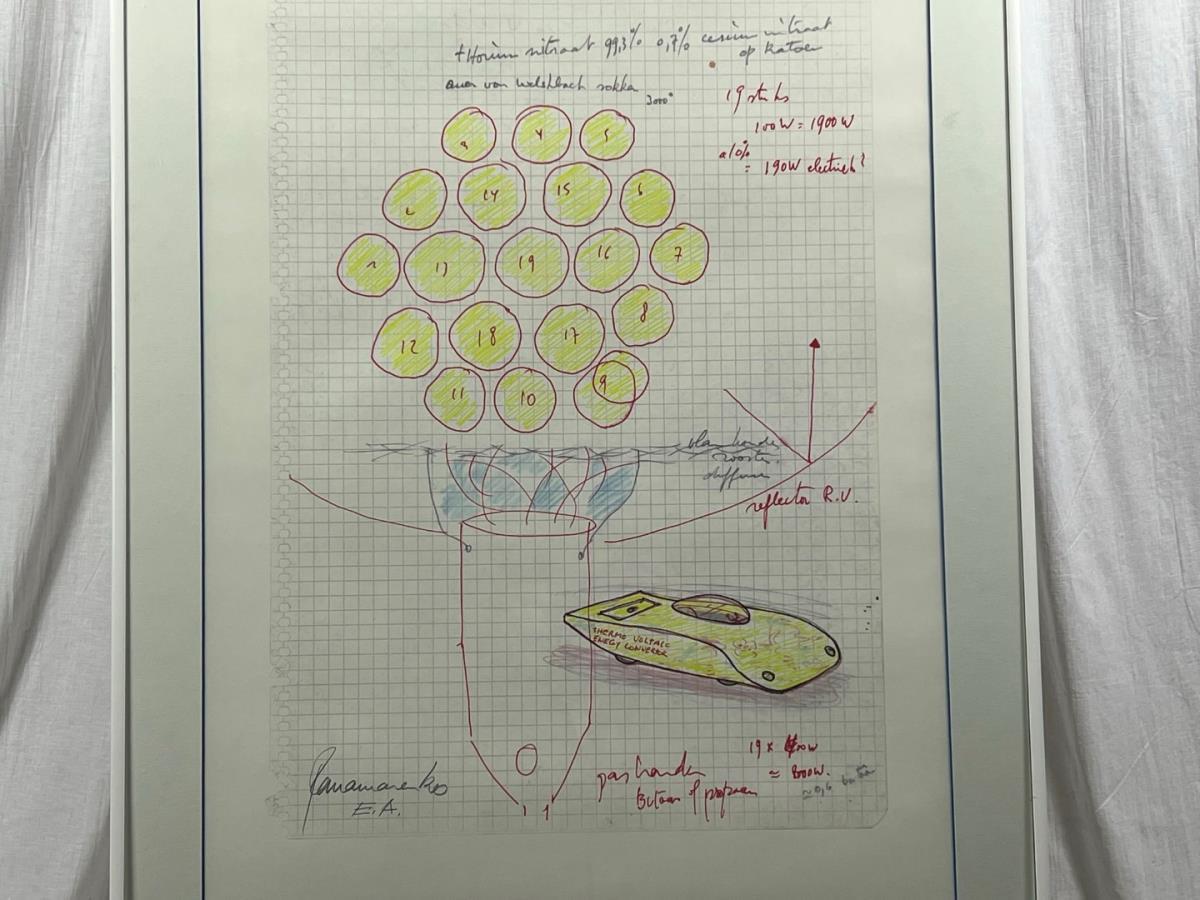 thorium nitraat 99,3% 0,7% cerium nitraat
op katoen
auer von welshbach sokken
3000°
19 stuks
100W = 1900W
a 10%
= 190W electrisch?
3 4 5
2 14 15 6
1 13 19 16 7
12 18 17 8
11 10 9
vlam
rooster
diffusor
reflector R.V.
THERMO VOLTAIC
ENEGY CONVERER
19 x
≈ 800W.
≈ 0,6
gasbrander
Butaan of propaan
Panamarenko
E.A.